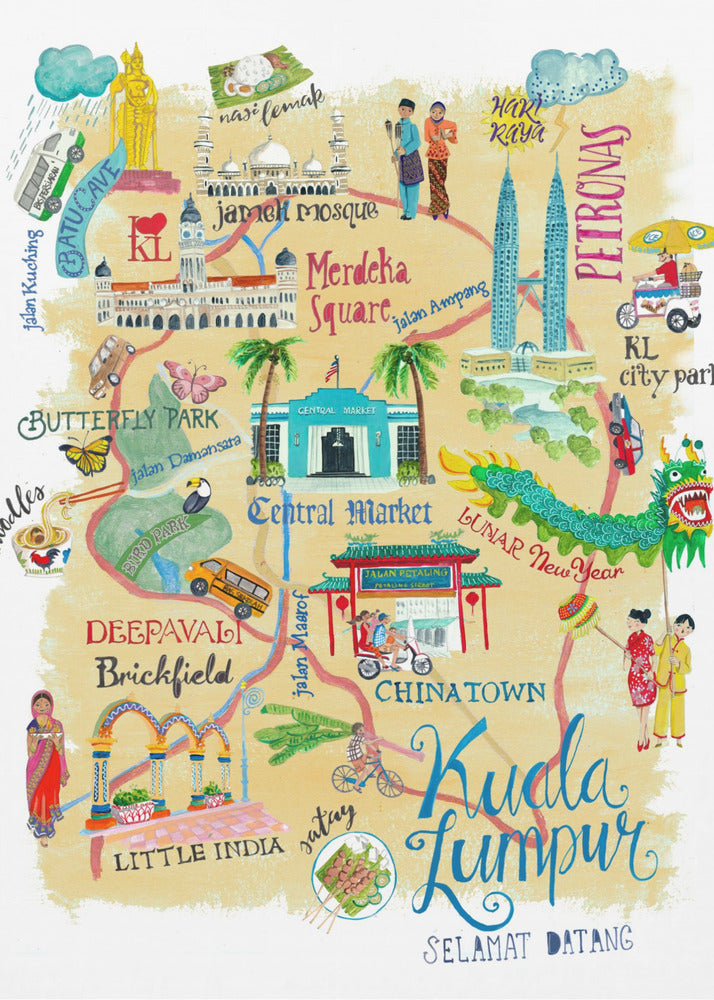 nasi lemak
HARI
RAYA
PETRONAS
BATU CAVE
jalan Kuching
jameh mosque
I
KL
Merdeka
Square
jalan Ampang
KL
city park
BUTTERFLY PARK
jalan Damansara
CENTRAL MARKET
Central Market
noodles
BIRD PARK
LUNAR New Year
JALAN PETALING
PETALING STREET
DEEPAVALI
Brickfield
jalan Maarof
CHINATOWN
LITTLE INDIA
satay
Kuala
Lumpur
SELAMAT DATANG